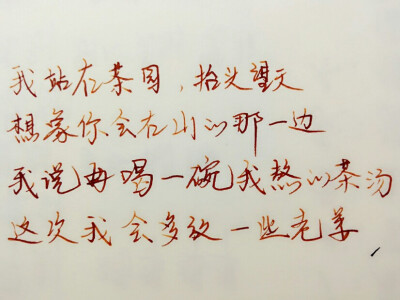 我站在茶园，抬头望天
想象你会在山的那一边
我说再喝一碗我熬的茶汤
这次我会多放一些老姜